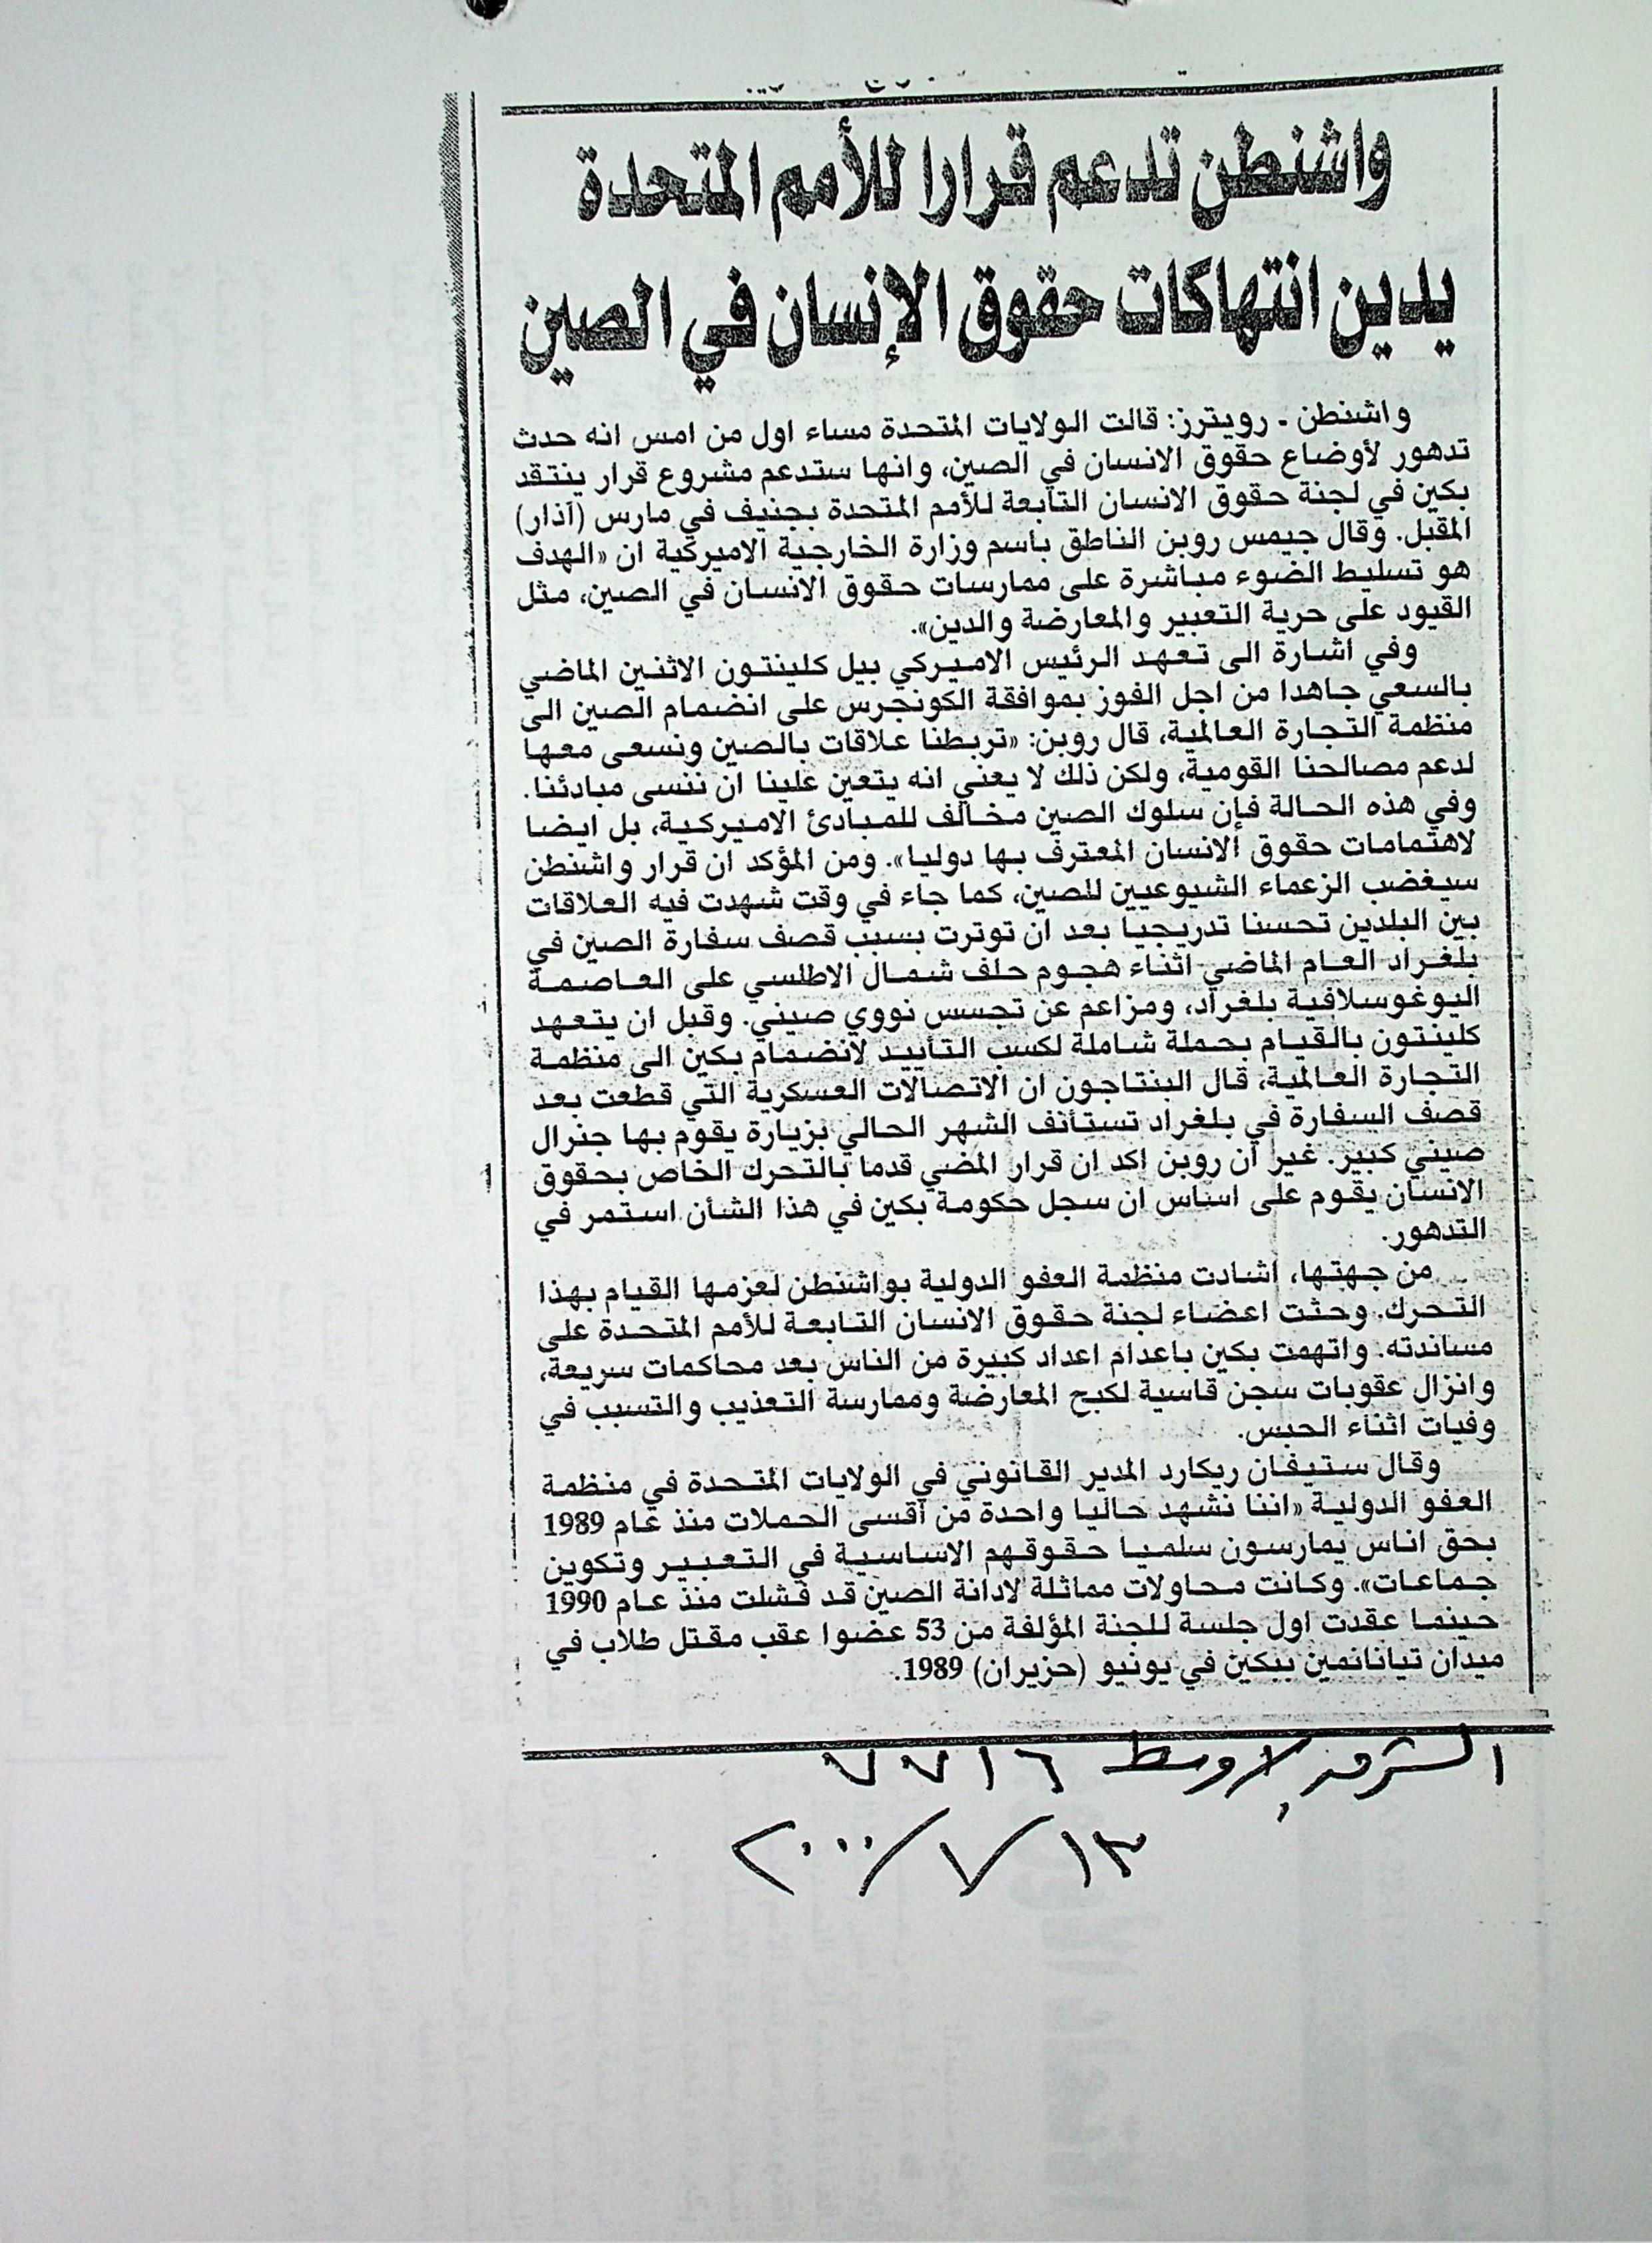 واشنطن تدعم قرارا للأمم المتحدة
يدين انتهاكات حقوق الإنسان في الصين
واشنطن ـ رويترز: قالت الولايات المتحدة مساء اول من امس انه حدث
تدهور لأوضاع حقوق الانسان في الصين، وانها ستدعم مشروع قرار ينتقد
بكين في لجنة حقوق الانسان التابعة للأمم المتحدة بجنيف في مارس (آذار)
المقبل. وقال جيمس روبن الناطق باسم وزارة الخارجية الاميركية ان «الهدف
هو تسليط الضوء مباشرة على ممارسات حقوق الانسان في الصين، مثل
القيود على حرية التعبير والمعارضة والدين».
وفي اشارة الى تعهد الرئيس الاميركي بيل كلينتون الاثنين الماضي
بالسعي جاهدا من اجل الفوز بموافقة الكونجرس على انضمام الصين الى
منظمة التجارة العالمية، قال روبن: «تربطنا علاقات بالصين ونسعى معها
لدعم مصالحنا القومية، ولكن ذلك لا يعني انه يتعين علينا ان ننسى مبادئنا.
وفي هذه الحالة فإن سلوك الصين مخالف للمبادئ الاميركية، بل ايضا
لاهتمامات حقوق الانسان المعترف بها دوليا». ومن المؤكد ان قرار واشنطن
سيغضب الزعماء الشيوعيين للصين، كما جاء في وقت شهدت فيه العلاقات
بين البلدين تحسنا تدريجيا بعد ان توترت بسبب قصف سفارة الصين في
بلغراد العام الماضي اثناء هجوم حلف شمال الاطلسي على العاصمة
اليوغوسلافية بلغراد، ومزاعم عن تجسس نووي صيني. وقبل ان يتعهد
كلينتون بالقيام بحملة شاملة لكسب التأييد لانضمام بكين الى منظمة
التجارة العالمية، قال البنتاجون ان الاتصالات العسكرية التي قطعت بعد
قصف السفارة في بلغراد تستأنف الشهر الحالي بزيارة يقوم بها جنرال
صيني كبير. غير ان روبن اكد ان قرار المضي قدما بالتحرك الخاص بحقوق
الانسان يقوم على اساس ان سجل حكومة بكين في هذا الشأن استمر في
التدهور.
من جهتها، اشادت منظمة العفو الدولية بواشنطن لعزمها القيام بهذا
التحرك. وحثت اعضاء لجنة حقوق الانسان التابعة للأمم المتحدة على
مساندته. واتهمت بكين باعدام اعداد كبيرة من الناس بعد محاكمات سريعة،
وانزال عقوبات سجن قاسية لكبح المعارضة وممارسة التعذيب والتسبب في
وفيات اثناء الحبس.
وقال ستيفان ريكارد المدير القانوني في الولايات المتحدة في منظمة
العفو الدولية «اننا نشهد حاليا واحدة من أقسى الحملات منذ عام 1989
بحق اناس يمارسون سلميا حقوقهم الاساسية في التعبير وتكوين
جماعات». وكانت محاولات مماثلة لادانة الصين قد فشلت منذ عام 1990
حينما عقدت اول جلسة للجنة المؤلفة من 53 عضوا عقب مقتل طلاب في
ميدان تيانانمين ببكين في يونيو (حزيران) 1989.
الشرق الاوسط ٧٧١٦
٢٠٠٠/١/١٣